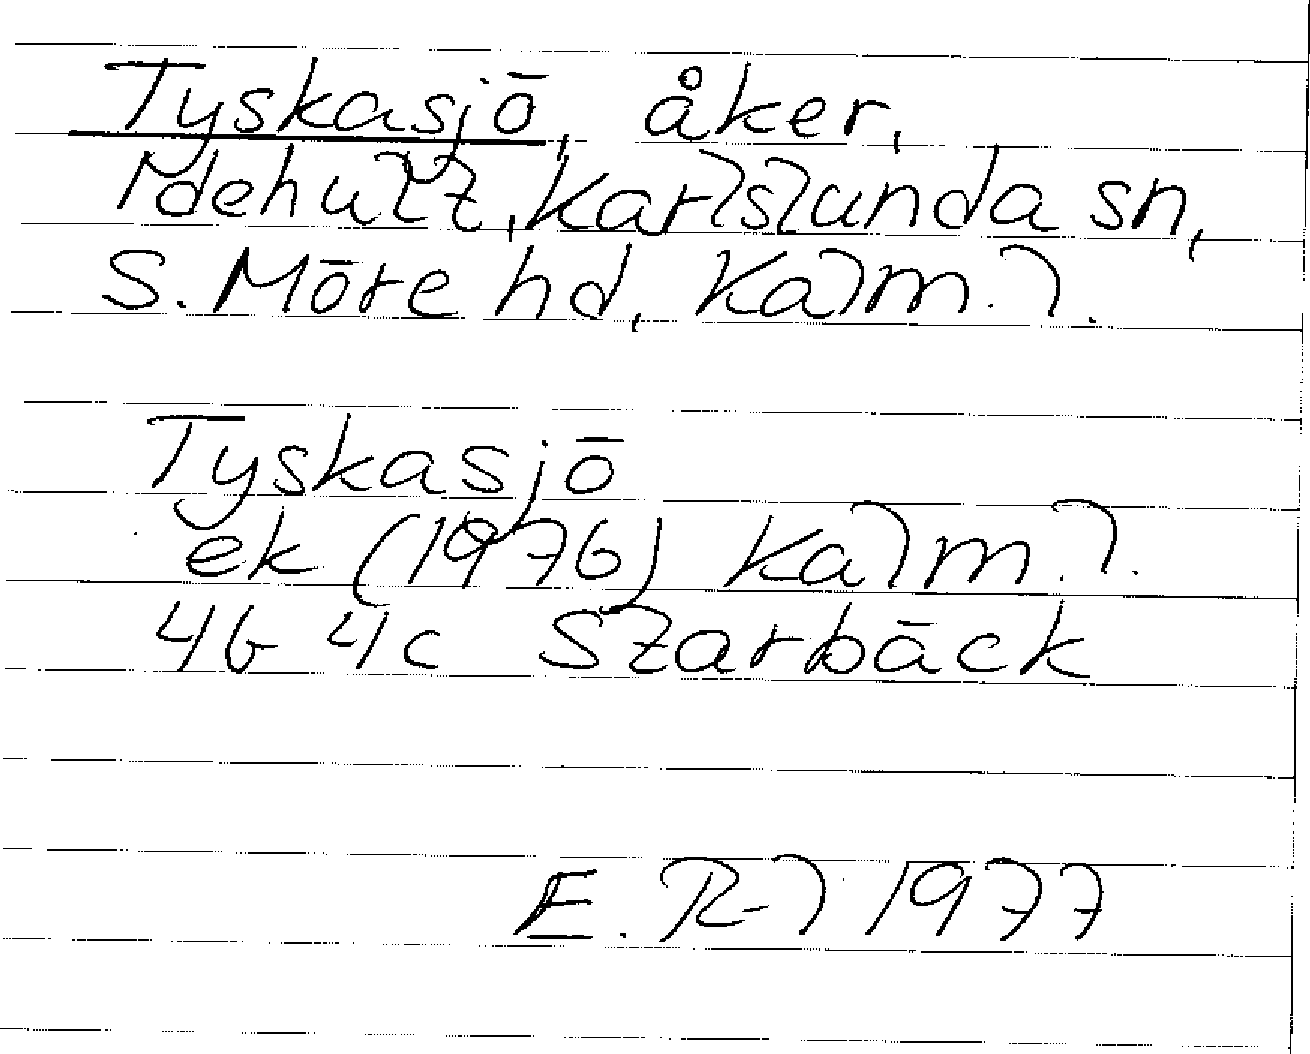 Tyskasjö, åker,
Idehult, Karlslunda sn,
S. Möre hd, Kalm. l.
Tyskasjö
ek (1976) Kalm. l.
4G 4c Starbäck
E. R-l 1977